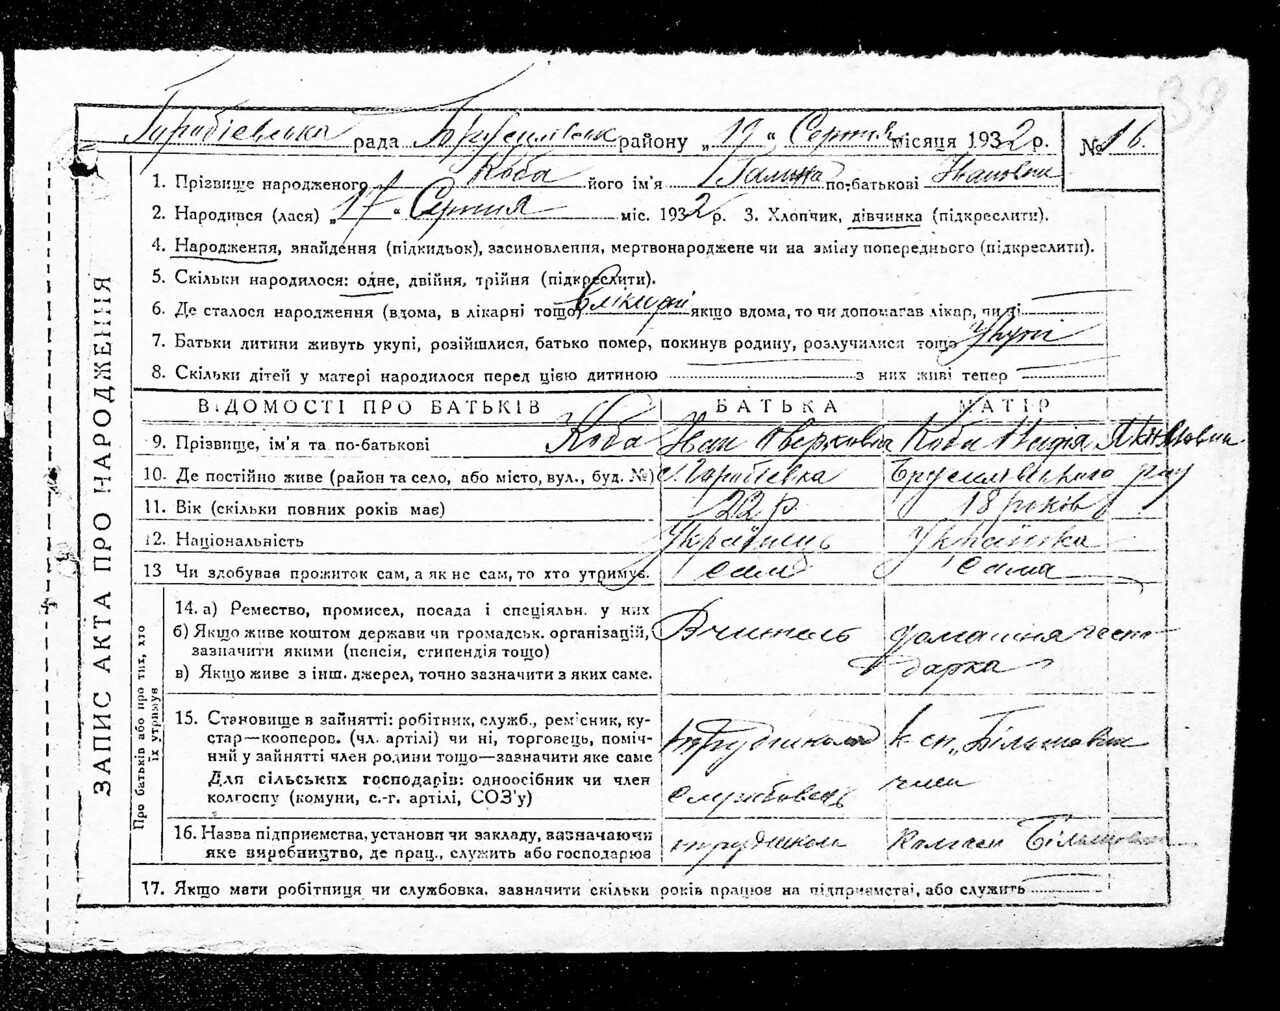 39
рада Брусилівськ району „19“ Серпня місяця 1932 р. № 16.
1. Прізвище народженого Коба його ім'я Галина по-батькові Івановна
2. Народився (лася) „17“ Серпня міс. 1932 р. 3. Хлопчик, дівчинка (підкреслити).
4. Народження, знайдення (підкидьок), засиновлення, мертвонароджене чи на зміну попереднього (підкреслити).
5. Скільки народилося: одне, двійня, трійня (підкреслити).
6. Де сталося народження (вдома, в лікарні тощо) якщо вдома, то чи допомагав лікар, чи ні
7. Батьки дитини живуть укупі, розійшлися, батько помер, покинув родину, розлучилися тощо Укупі
8. Скільки дітей у матері народилося перед цією дитиною з них живі тепер
ВІДОМОСТІ ПРО БАТЬКІВ БАТЬКА МАТІР
9. Прізвище, ім'я та по-батькові Коба Іван Оверкович Коба
10. Де постійно живе (район та село, або місто, вул., буд. №) Брусилівського рай
11. Вік (скільки повних років має) 22 р. 18 років
12. Національність Українець Українка
13 Чи здобував прожиток сам, а як не сам, то хто утримув. сам сама
14. а) Ремество, промисел, посада і спеціяльн. у них
б) Якщо живе коштом держави чи громадськ. організацій, Вчитель домашня госпо
зазначити якими (пенсія, стипендія тощо) дарка
в) Якщо живе з інш. джерел, точно зазначити з яких саме.
15. Становище в зайнятті: робітник, служб., ремісник, ку-
стар—кооперов. (чл. артілі) чи ні, торговець, поміч-
ний у зайнятті член родини тощо—зазначити яке саме
Для сільських господарів: одноосібник чи член службовець
колгоспу (комуни, с.-г. артілі, СОЗ'у)
16. Назва підприємства, установи чи закладу, зазначаючи
яке виробництво, де прац., служить або господарює
17. Якщо мати робітниця чи службовка, зазначити скільки років працює на підприємстві, або служить
ЗАПИС АКТА ПРО НАРОДЖЕННЯ
Про батьків або про тих, хто
їх утримув